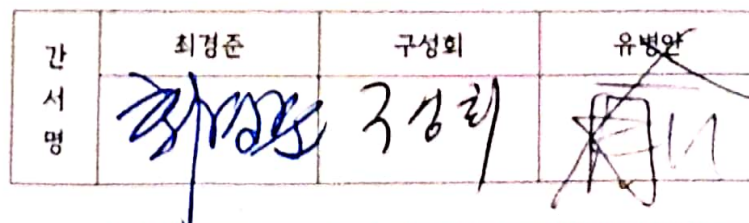 간서명
최경준 구성회 유병안
구성회